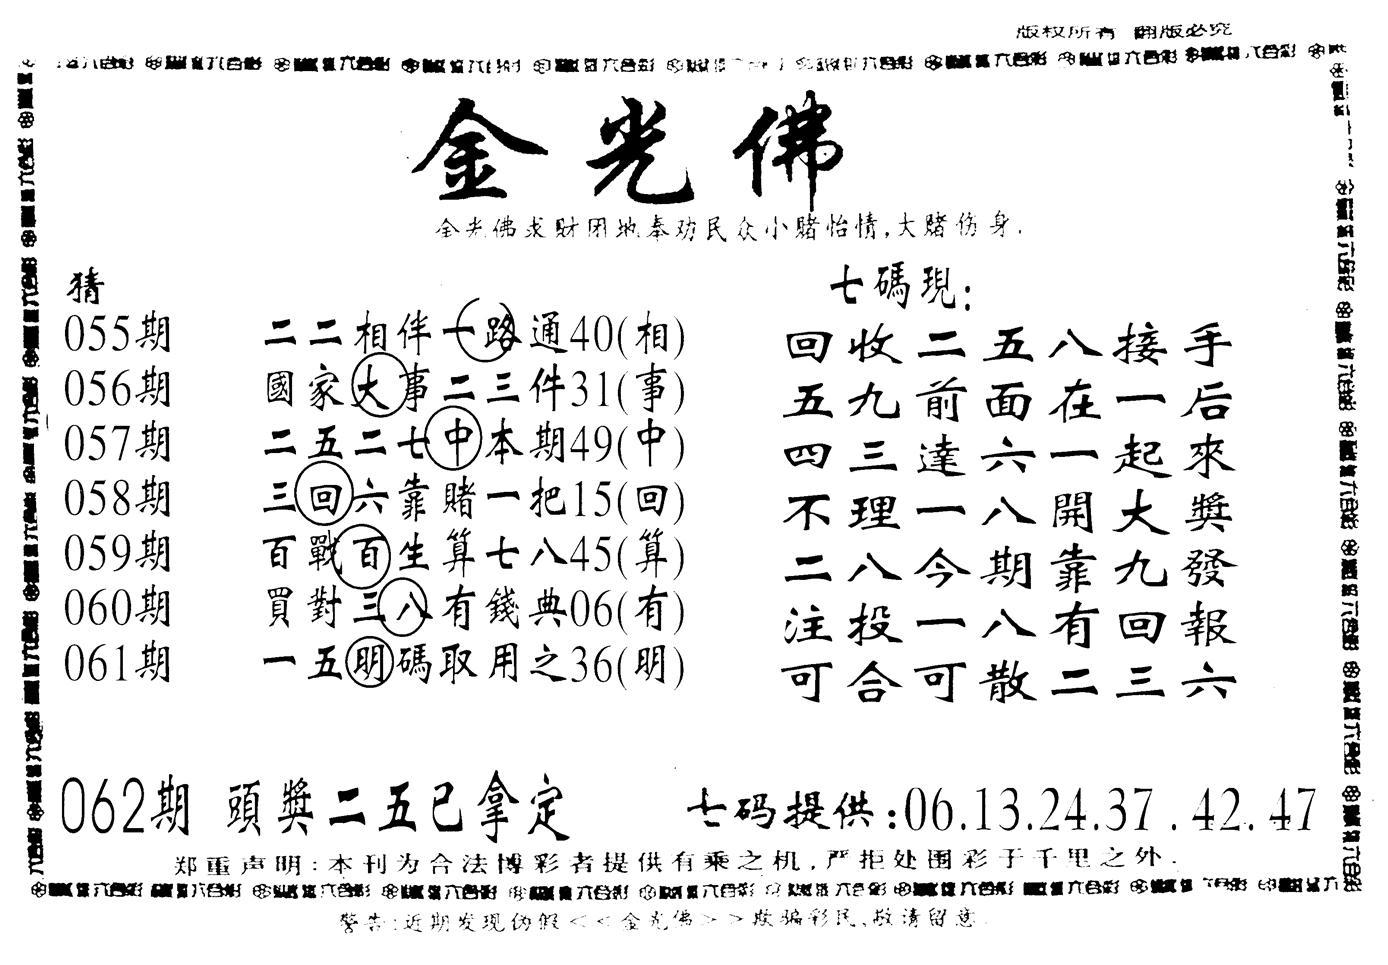 版权所有 翻版必究
金光佛
金光佛求财团地奉劝民众小赌怡情,大赌伤身.
猜
055期 二二相伴一路通40(相)
056期 國家大事二三件31(事)
057期 二五二七中本期49(中)
058期 三回六靠賭一把15(回)
059期 百戰百生算七八45(算)
060期 買對三八有錢典06(有)
061期 一五明碼取用之36(明)
七碼現:
回收二五八接手
五九前面在一后
四三達六一起來
不理一八開大獎
二八今期靠九發
注投一八有回報
可合可散二三六
062期 頭獎二五已拿定
七码提供:06.13.24.37.42.47
郑重声明:本刊为合法博彩者提供有乘之机,严拒处围彩于千里之外.
警告:近期发现伪假<<金光佛>>欺骗彩民,敬请留意.